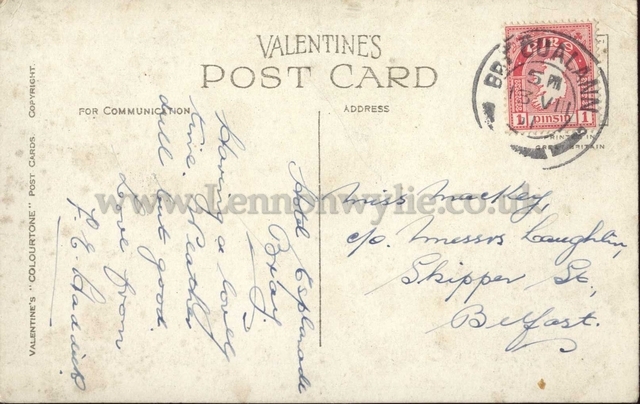 VALENTINE'S
POST CARD
FOR COMMUNICATION
ADDRESS
VALENTINE'S "COLOURTONE" POST CARDS COPYRIGHT.
Hotel Esplanade
Bray.
Having a lovely
time. Weather
dull but good.
Love from
Miss Mackey,
c/o. Messrs Laughlin,
Skipper St.,
Belfast.
BRÍ CUALANN
5 PM
VII
1 PINSIN 1
PRINTED IN
GREAT BRITAIN
www.Lennonwylie.co.uk